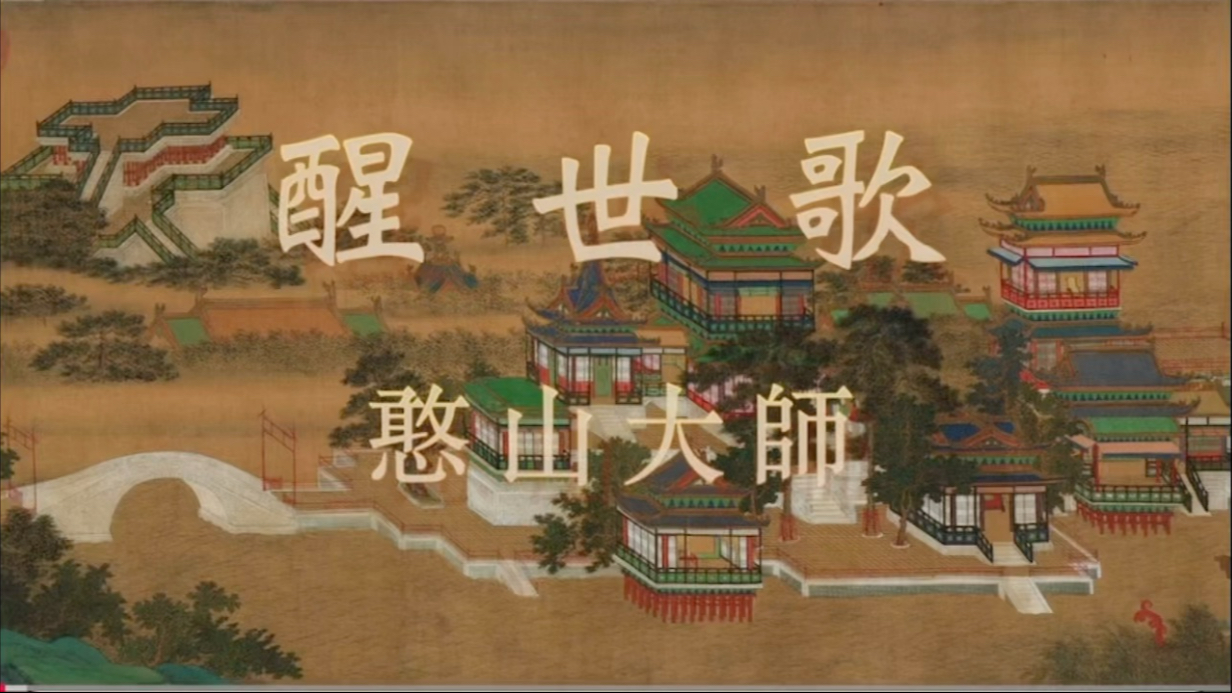 醒世歌
憨山大師